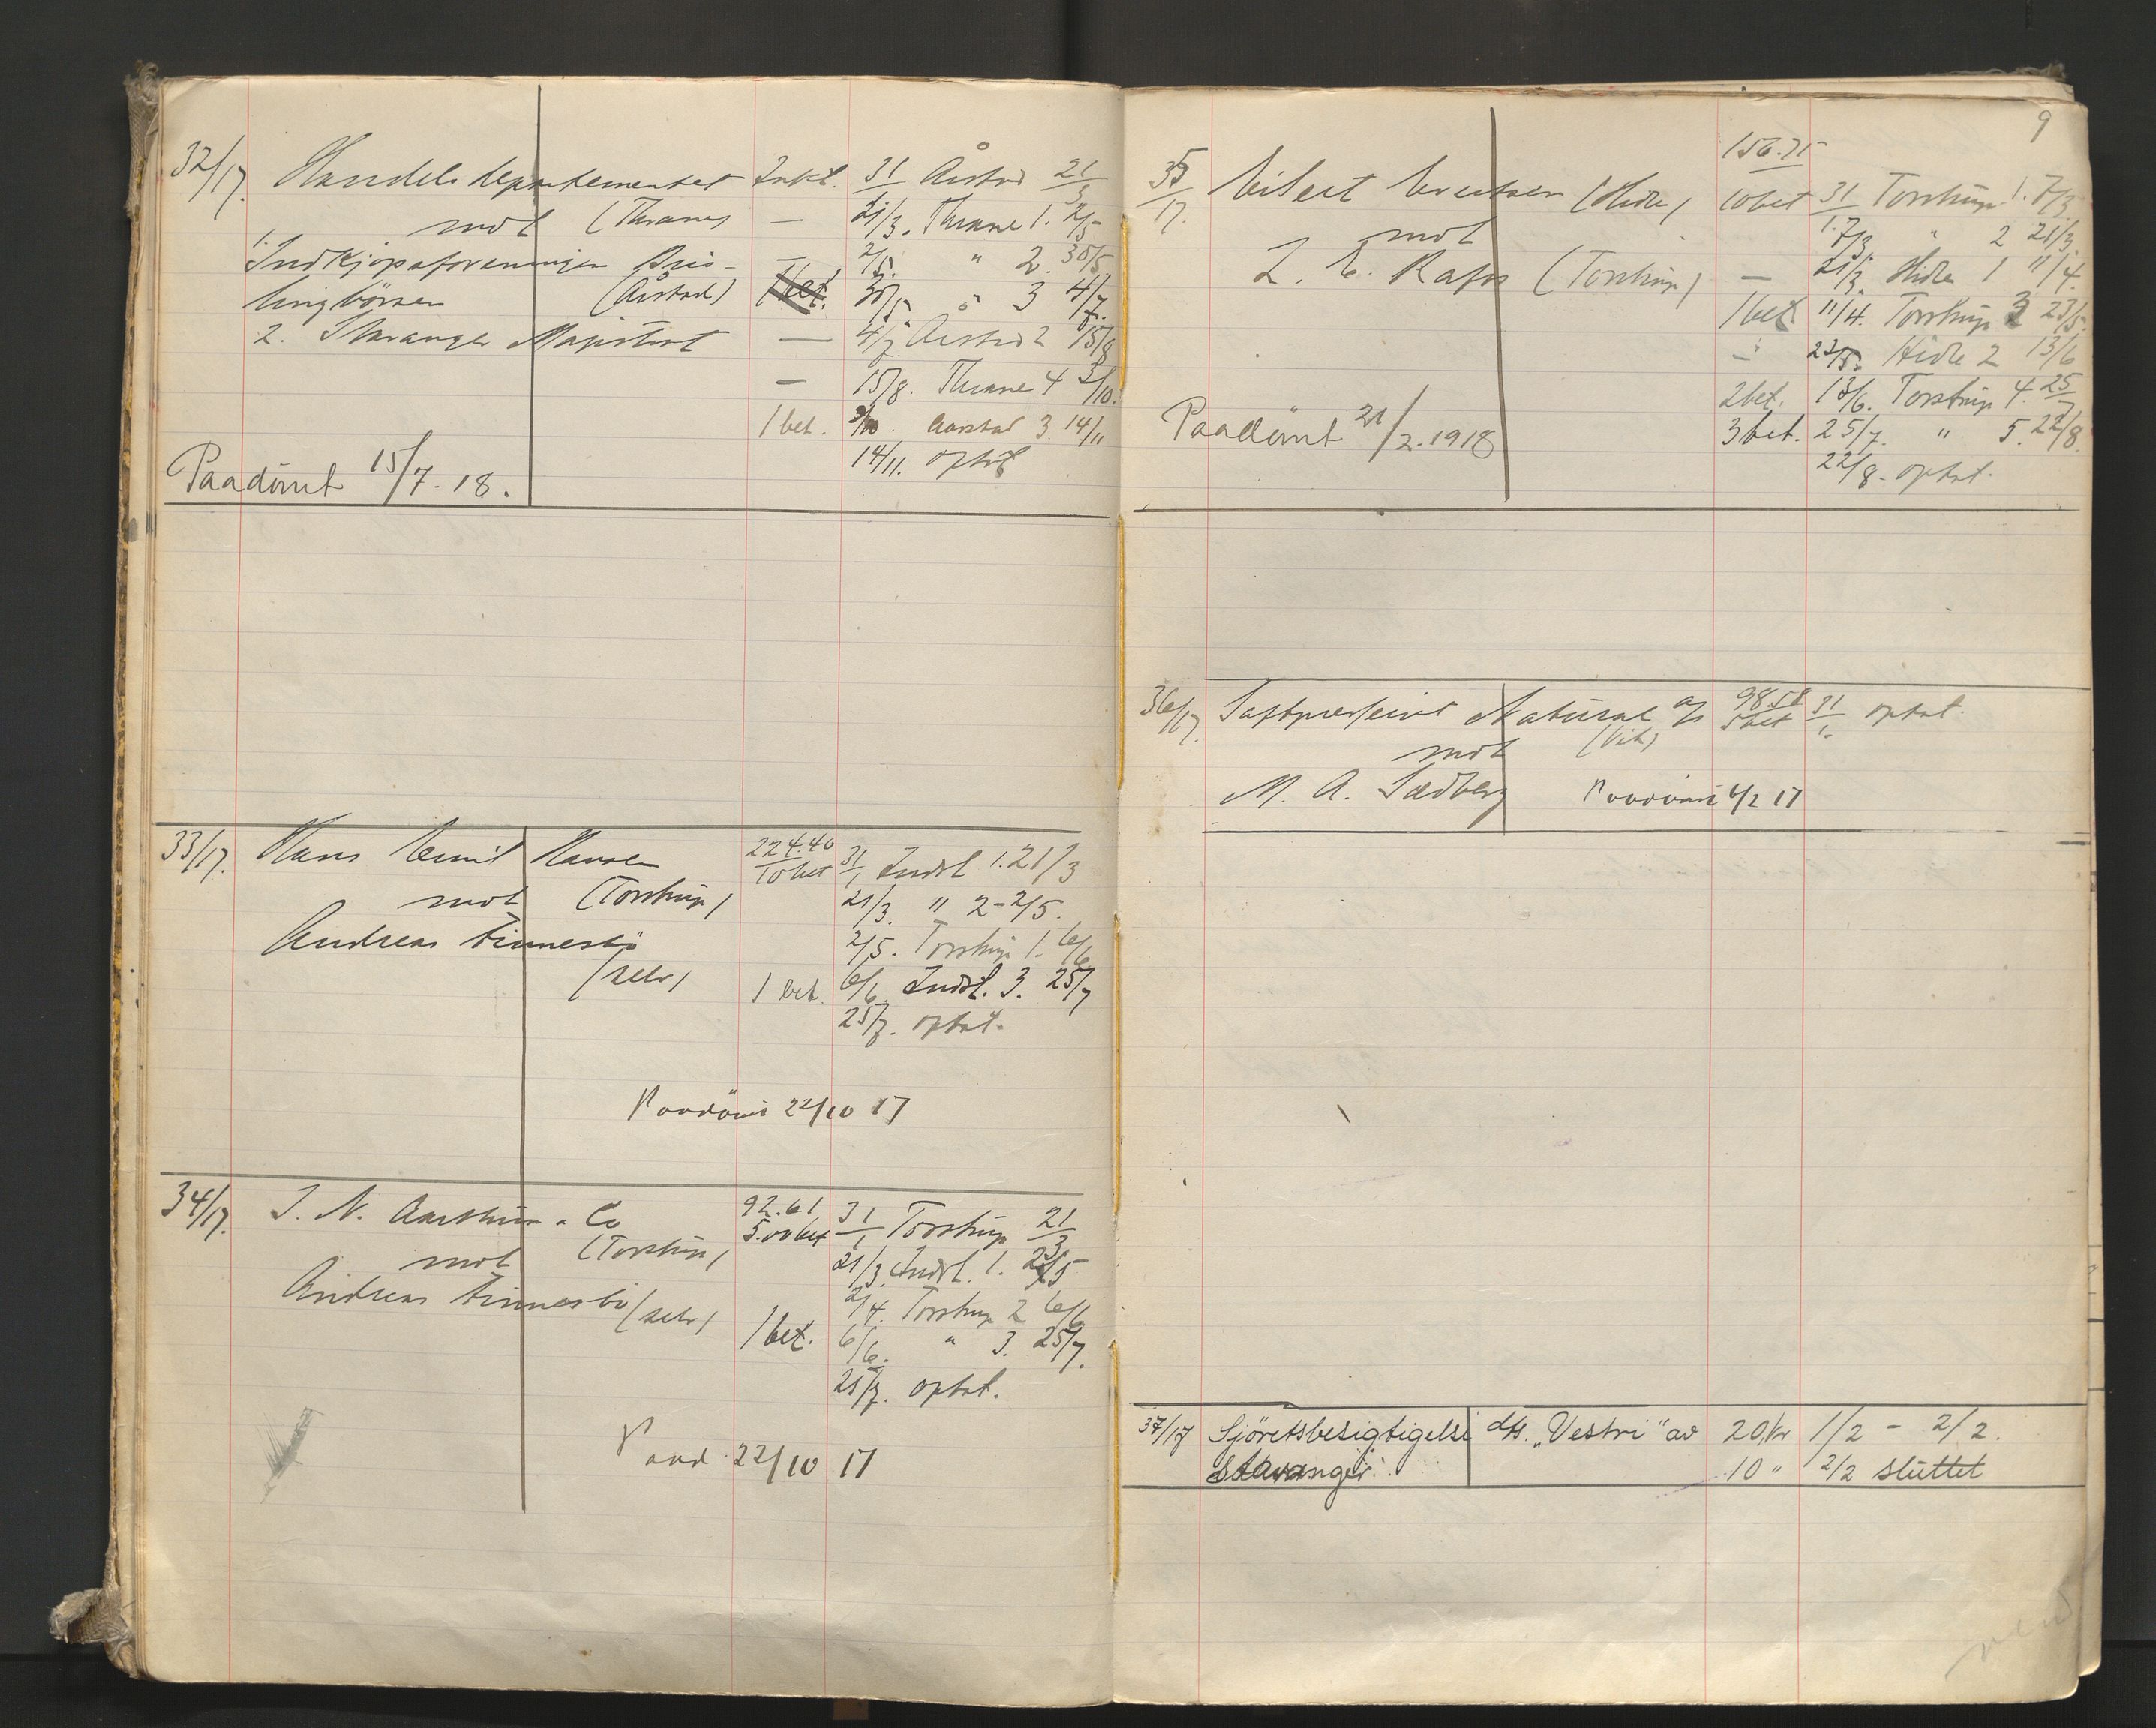 32/17. Handelsdepartementet Inkl. 31 Årstad 21/3
mot (Thranes — 21/3. Thrane 1. 2/5
1. Indkjøpsforeningen Pris- — 2/5. " 2. 30/5
(Årstad) 1 bet. 30/5 " 3 4/7.
2. Stavanger Magistrat — 4/7 Årstad 2 15/8
— 15/8. Thrane 4 3/10.
1 bet. 3/10. Aarstad 3 14/11
14/11. optat
Paadömt 15/7. 18.
33/17. Hans Emil Hansen 224.40 10 bet 31/1 Indst 1. 21/3
mot (Torstrup) 21/3 " 2 - 2/5.
Andreas Finnesbö 2/5. Torstrup 1. 6/6
(selv) 1 bet. 6/6 Indst. 3. 25/7
25/7. optat.
Paadömt 22/10 17
34/17. I. N. Aarstrup & Co 92.61 5.00 bet 31/1 Torstrup 21/3
mot (Torstrup) 21/3. Indst. 1. 2/5
Andreas Finnesbö (selv) 2/4. Torstrup 2 6/6
1 bet. 6/6. " 3. 25/7.
25/7. optat.
Paad. 22/10 17
9
156.75
35/17. Eilert Evertsen (Hidle) 10 bet 31 Torstrup 1. 7/3.
mot 7/3 " 2 21/3.
L. E. Rafos (Torstrup) — 21/3. Hidle 1 11/4.
1 bet. 11/4. Torstrup 3 23/5.
" 23/5. Hidle 2 13/6
2 bet. 13/6. Torstrup 4. 25/7
Paadömt 21/2. 1918 3 bet. 25/7. " 5. 22/8.
22/8. optat.
36/17. Saftpresseriet Natural A/S 98.58 5 bet 31/1. optat.
mot (Vik)
M. A. Sædberg Paadömt 6/2 17
37/17 Sjöretsbesigtigelse d/s. „Vestri" av 20 kr 1/2 - 2/2.
Stavanger. 10 " 2/2 sluttet